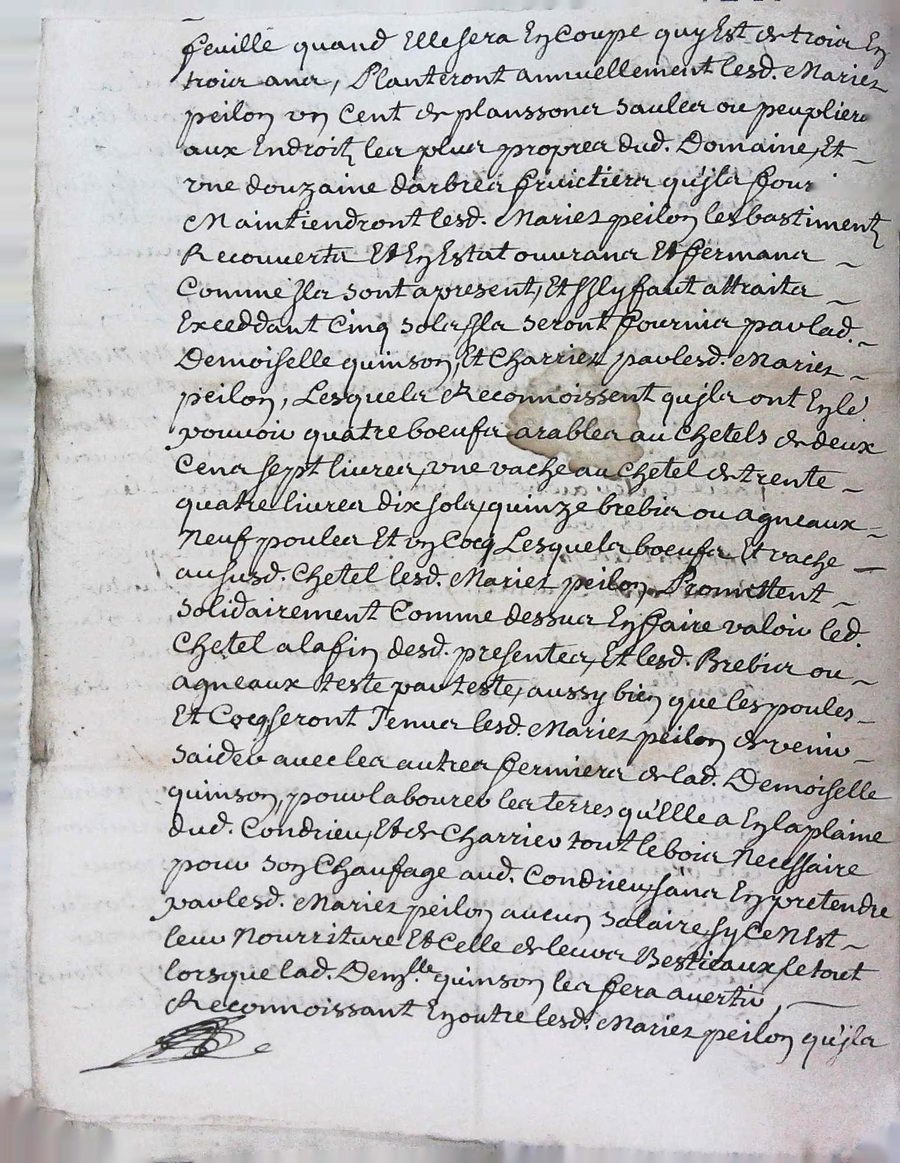 feuille quand Elle sera En Coupe quy Est de trois En
trois ans, Planteront annuellement lesd. Mariez
peilon un Cent de planssons saules ou peupliers
aux Endroitz les plus propres dud. Domaine, Et
une douzaine darbres fruictiers qu'jls
Maintiendront lesd. Mariez peilon les bastimentz
Recouverts Et En Estat ouvrans Et fermans
Comme Jls sont apresent, Et Sjl y faut attraits
Exceddant Cinq sols Jls seront fournis par lad.
Demoiselle quinson, Et Charriez par lesd. Mariez
peilon, Lesquels Reconnoissent qu'jls ont En le
pouvoir quatre boeufs arables au Chetels de deux
Cens sept livres, une vache au Chetel de trente
quatre livres dix sols, quinze brebis ou agneaux
Neuf poules Et un Cocq Lesquels boeufs Et vache
au susd. Chetel lesd. Mariez peilon Promettent
solidairement Comme dessus En faire valoir led.
Chetel a la fin desd. presentes, Et lesd. Brebis ou
agneaux teste par teste, aussy bien que les poules
Et Cocq, seront Tenus lesd. Mariez peilon de venir
saider avec les autres fermiers de lad. Demoiselle
quinson, pour labourer les terres qu'Elle a En la plaine
dud. Condrieu, Et de Charrier tout le bois Necessaire
pour son Chaufage aud. Condrieu, sans En pretendre
par lesd. Mariez peilon aucun salaire, sy Ce N'Est
leur Nourriture Et Celle de leurs Bestieaux, le tout
lorsque lad. Demslle quinson les fera avertir,
Reconnoissant En outre lesd. Mariez peilon qu'jls